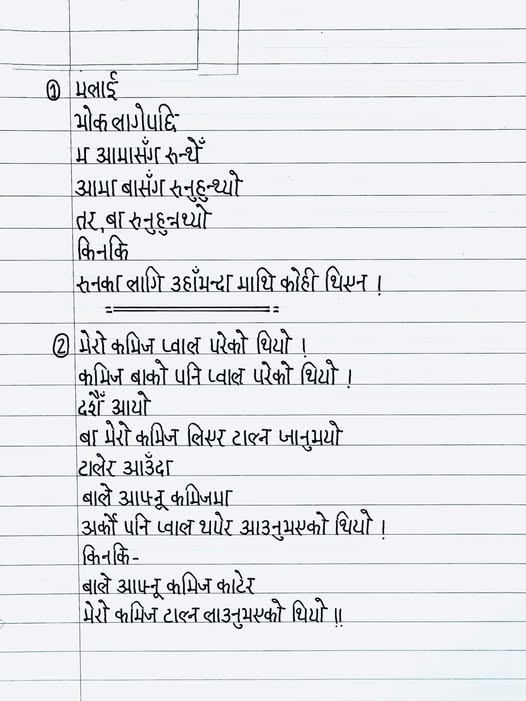 ① मलाई
भोक लागेपछि
म आमासँग रुन्थेँ
आमा बासँग रुनुहुन्थ्यो
तर, बा रुनुहुन्नथ्यो
किनकि
रुनका लागि उहाँभन्दा माथि कोही थिएन !
② मेरो कमिज प्वाल परेको थियो !
कमिज बाको पनि प्वाल परेको थियो !
दशैँ आयो
बा मेरो कमिज लिएर टाल्न जानुभयो
टालेर आउँदा
बाले आफ्नू कमिजमा
अर्को पनि प्वाल थपेर आउनुभएको थियो !
किनकि-
बाले आफ्नू कमिज काटेर
मेरो कमिज टाल्न लाउनुभएको थियो !!